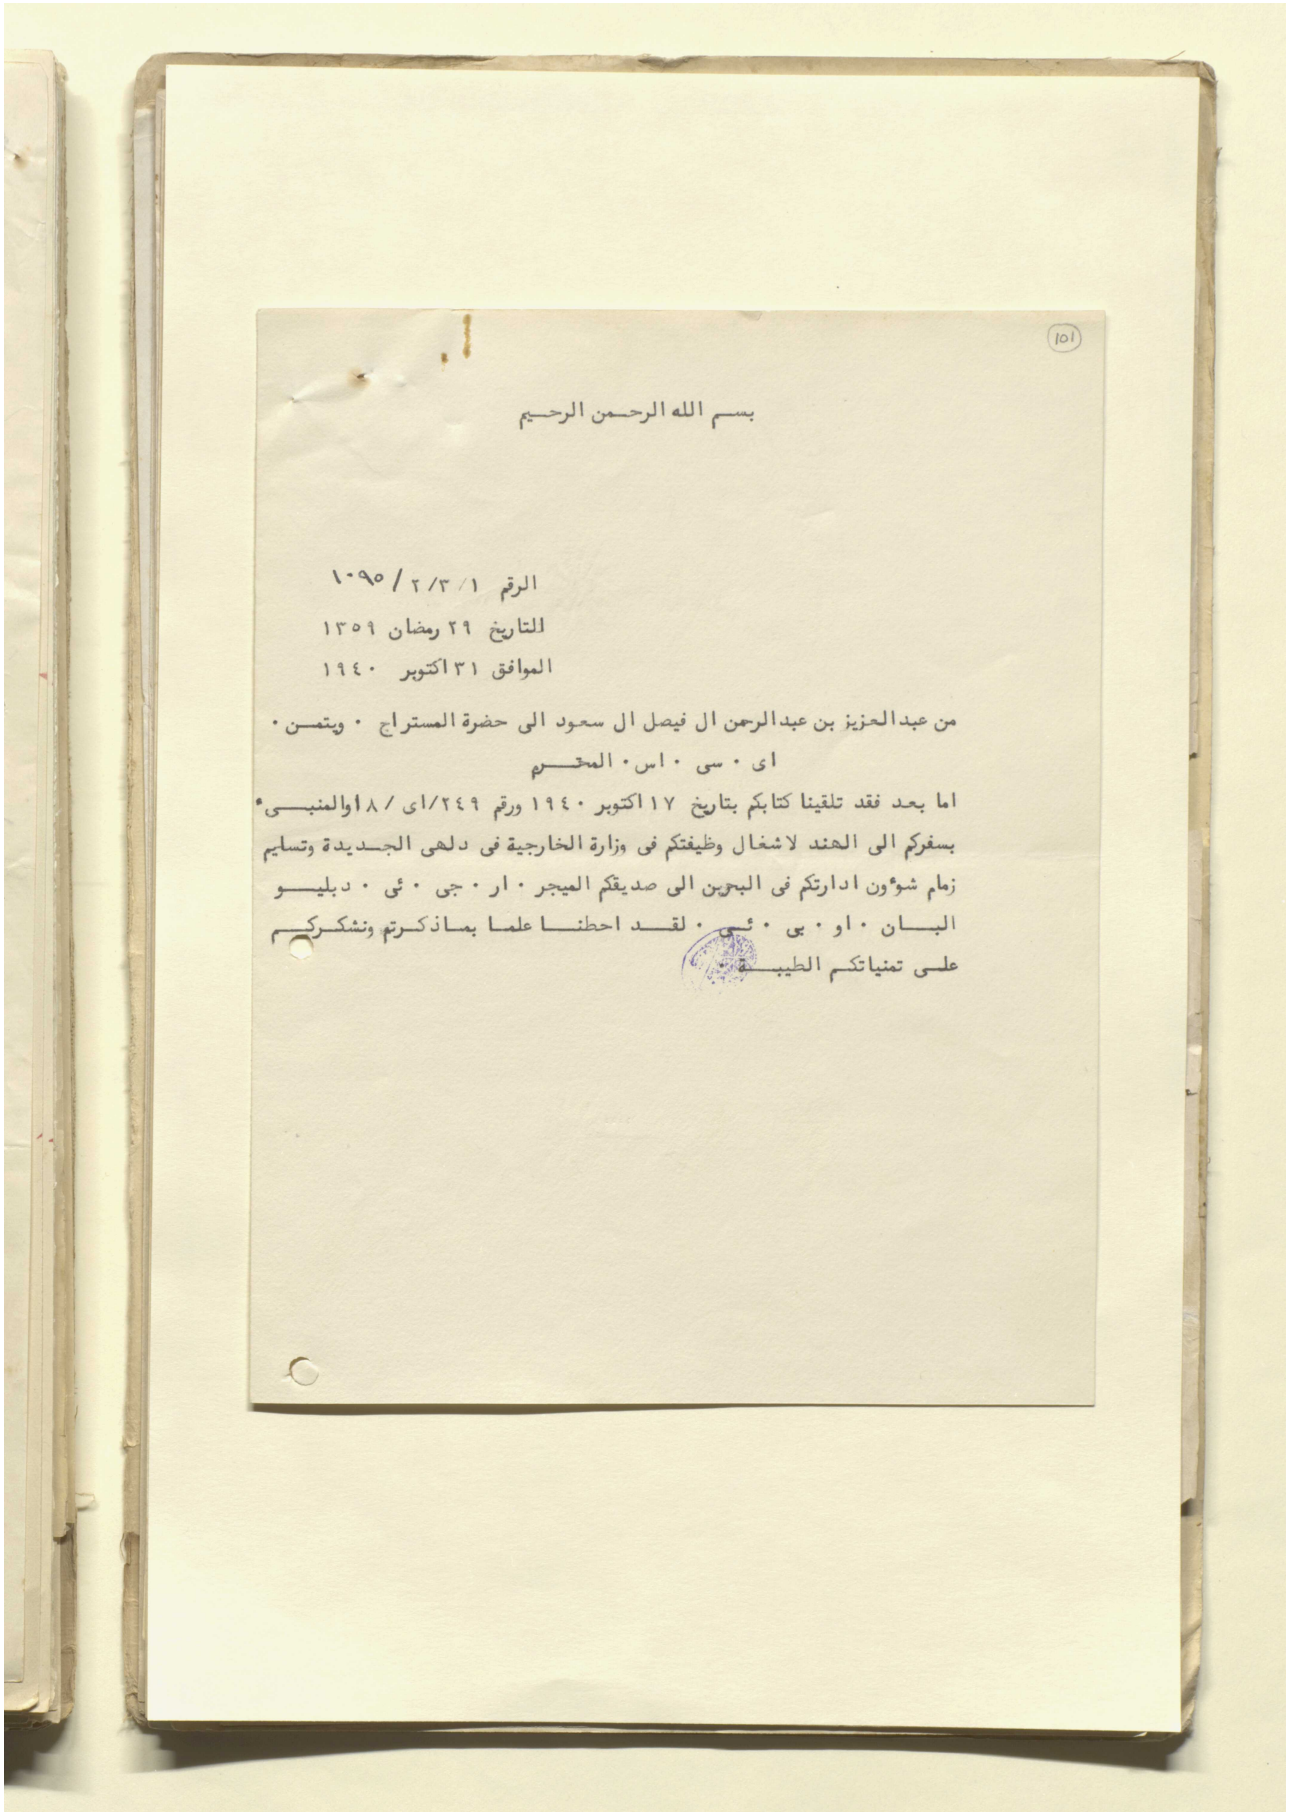 101
بسم الله الرحمن الرحيم
الرقم ١/ ٣/ ٢ / ١٠٩٥
التاريخ ٢٩ رمضان ١٣٥٩
الموافق ٣١ اكتوبر ١٩٤٠
من عبدالعزيز بن عبدالرحمن ال فيصل ال سعود الى حضرة المستر اج ٠ ويتمن ٠
اى ٠ سى ٠ اس ٠ المحترم
اما بعد فقد تلقينا كتابكم بتاريخ ١٧ اكتوبر ١٩٤٠ ورقم ٢٤٩/اى /١٨ والمنبىء
بسفركم الى الهند لاشغال وظيفتكم فى وزارة الخارجية فى دلهى الجديدة وتسليم
زمام شوءون ادارتكم فى البحرين الى صديقكم الميجر ٠ ار ٠ جى ٠ ئى ٠ دبليو
البان ٠ او ٠ بى ٠ ئى ٠ لقد احطنا علما بماذكرتم ونشكركم
على تمنياتكم الطيبة ٠